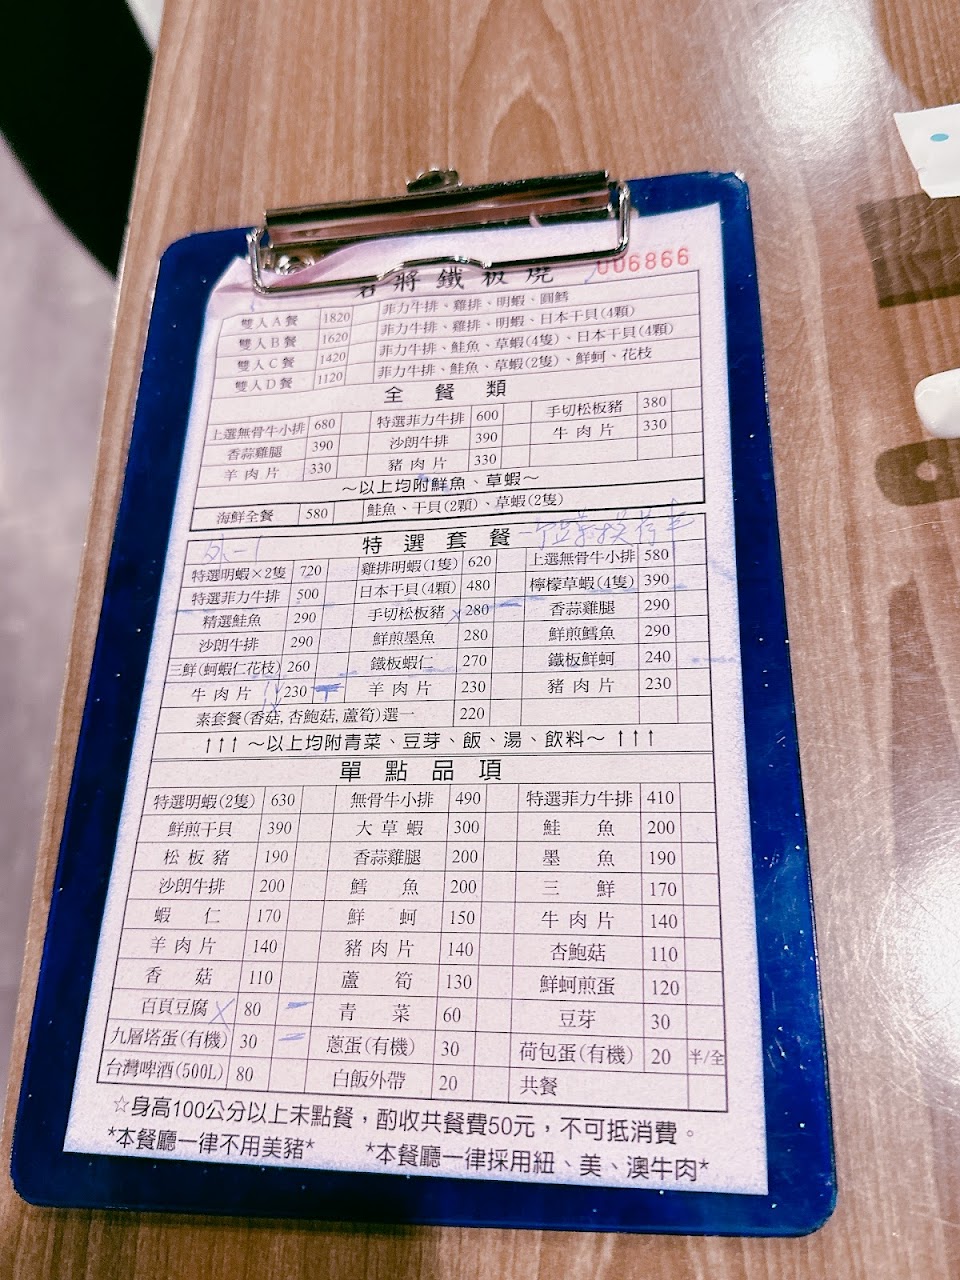 006866
將鐵板燒
雙人A餐 1820 菲力牛排、雞排、明蝦、圓鱈
雙人B餐 1620 菲力牛排、雞排、明蝦、日本干貝(4顆)
雙人C餐 1420 菲力牛排、鮭魚、草蝦(4隻)、日本干貝(4顆)
雙人D餐 1120 菲力牛排、鮭魚、草蝦(2隻)、鮮蚵、花枝
全餐類
上選無骨牛小排 680 特選菲力牛排 600 手切松板豬 380
香蒜雞腿 390 沙朗牛排 390 牛肉片 330
羊肉片 330 豬肉片 330
～以上均附鮮魚、草蝦～
海鮮全餐 580 鮭魚、干貝(2顆)、草蝦(2隻)
特選套餐
特選明蝦×2隻 720 雞排明蝦(1隻) 620 上選無骨牛小排 580
特選菲力牛排 500 日本干貝(4顆) 480 檸檬草蝦(4隻) 390
精選鮭魚 290 手切松板豬 280 香蒜雞腿 290
沙朗牛排 290 鮮煎墨魚 280 鮮煎鱈魚 290
三鮮(蚵蝦仁花枝) 260 鐵板蝦仁 270 鐵板鮮蚵 240
牛肉片 230 羊肉片 230 豬肉片 230
素套餐(香菇,杏鮑菇,蘆筍)選一 220
↑↑↑ ～以上均附青菜、豆芽、飯、湯、飲料～ ↑↑↑
單點品項
特選明蝦(2隻) 630 無骨牛小排 490 特選菲力牛排 410
鮮煎干貝 390 大草蝦 300 鮭魚 200
松板豬 190 香蒜雞腿 200 墨魚 190
沙朗牛排 200 鱈魚 200 三鮮 170
蝦仁 170 鮮蚵 150 牛肉片 140
羊肉片 140 豬肉片 140 杏鮑菇 110
香菇 110 蘆筍 130 鮮蚵煎蛋 120
百頁豆腐 80 青菜 60 豆芽 30
九層塔蛋(有機) 30 蔥蛋(有機) 30 荷包蛋(有機) 20 半/全
台灣啤酒(500L) 80 白飯外帶 20 共餐
☆身高100公分以上未點餐，酌收共餐費50元，不可抵消費。
*本餐廳一律不用美豬* *本餐廳一律採用紐、美、澳牛肉*